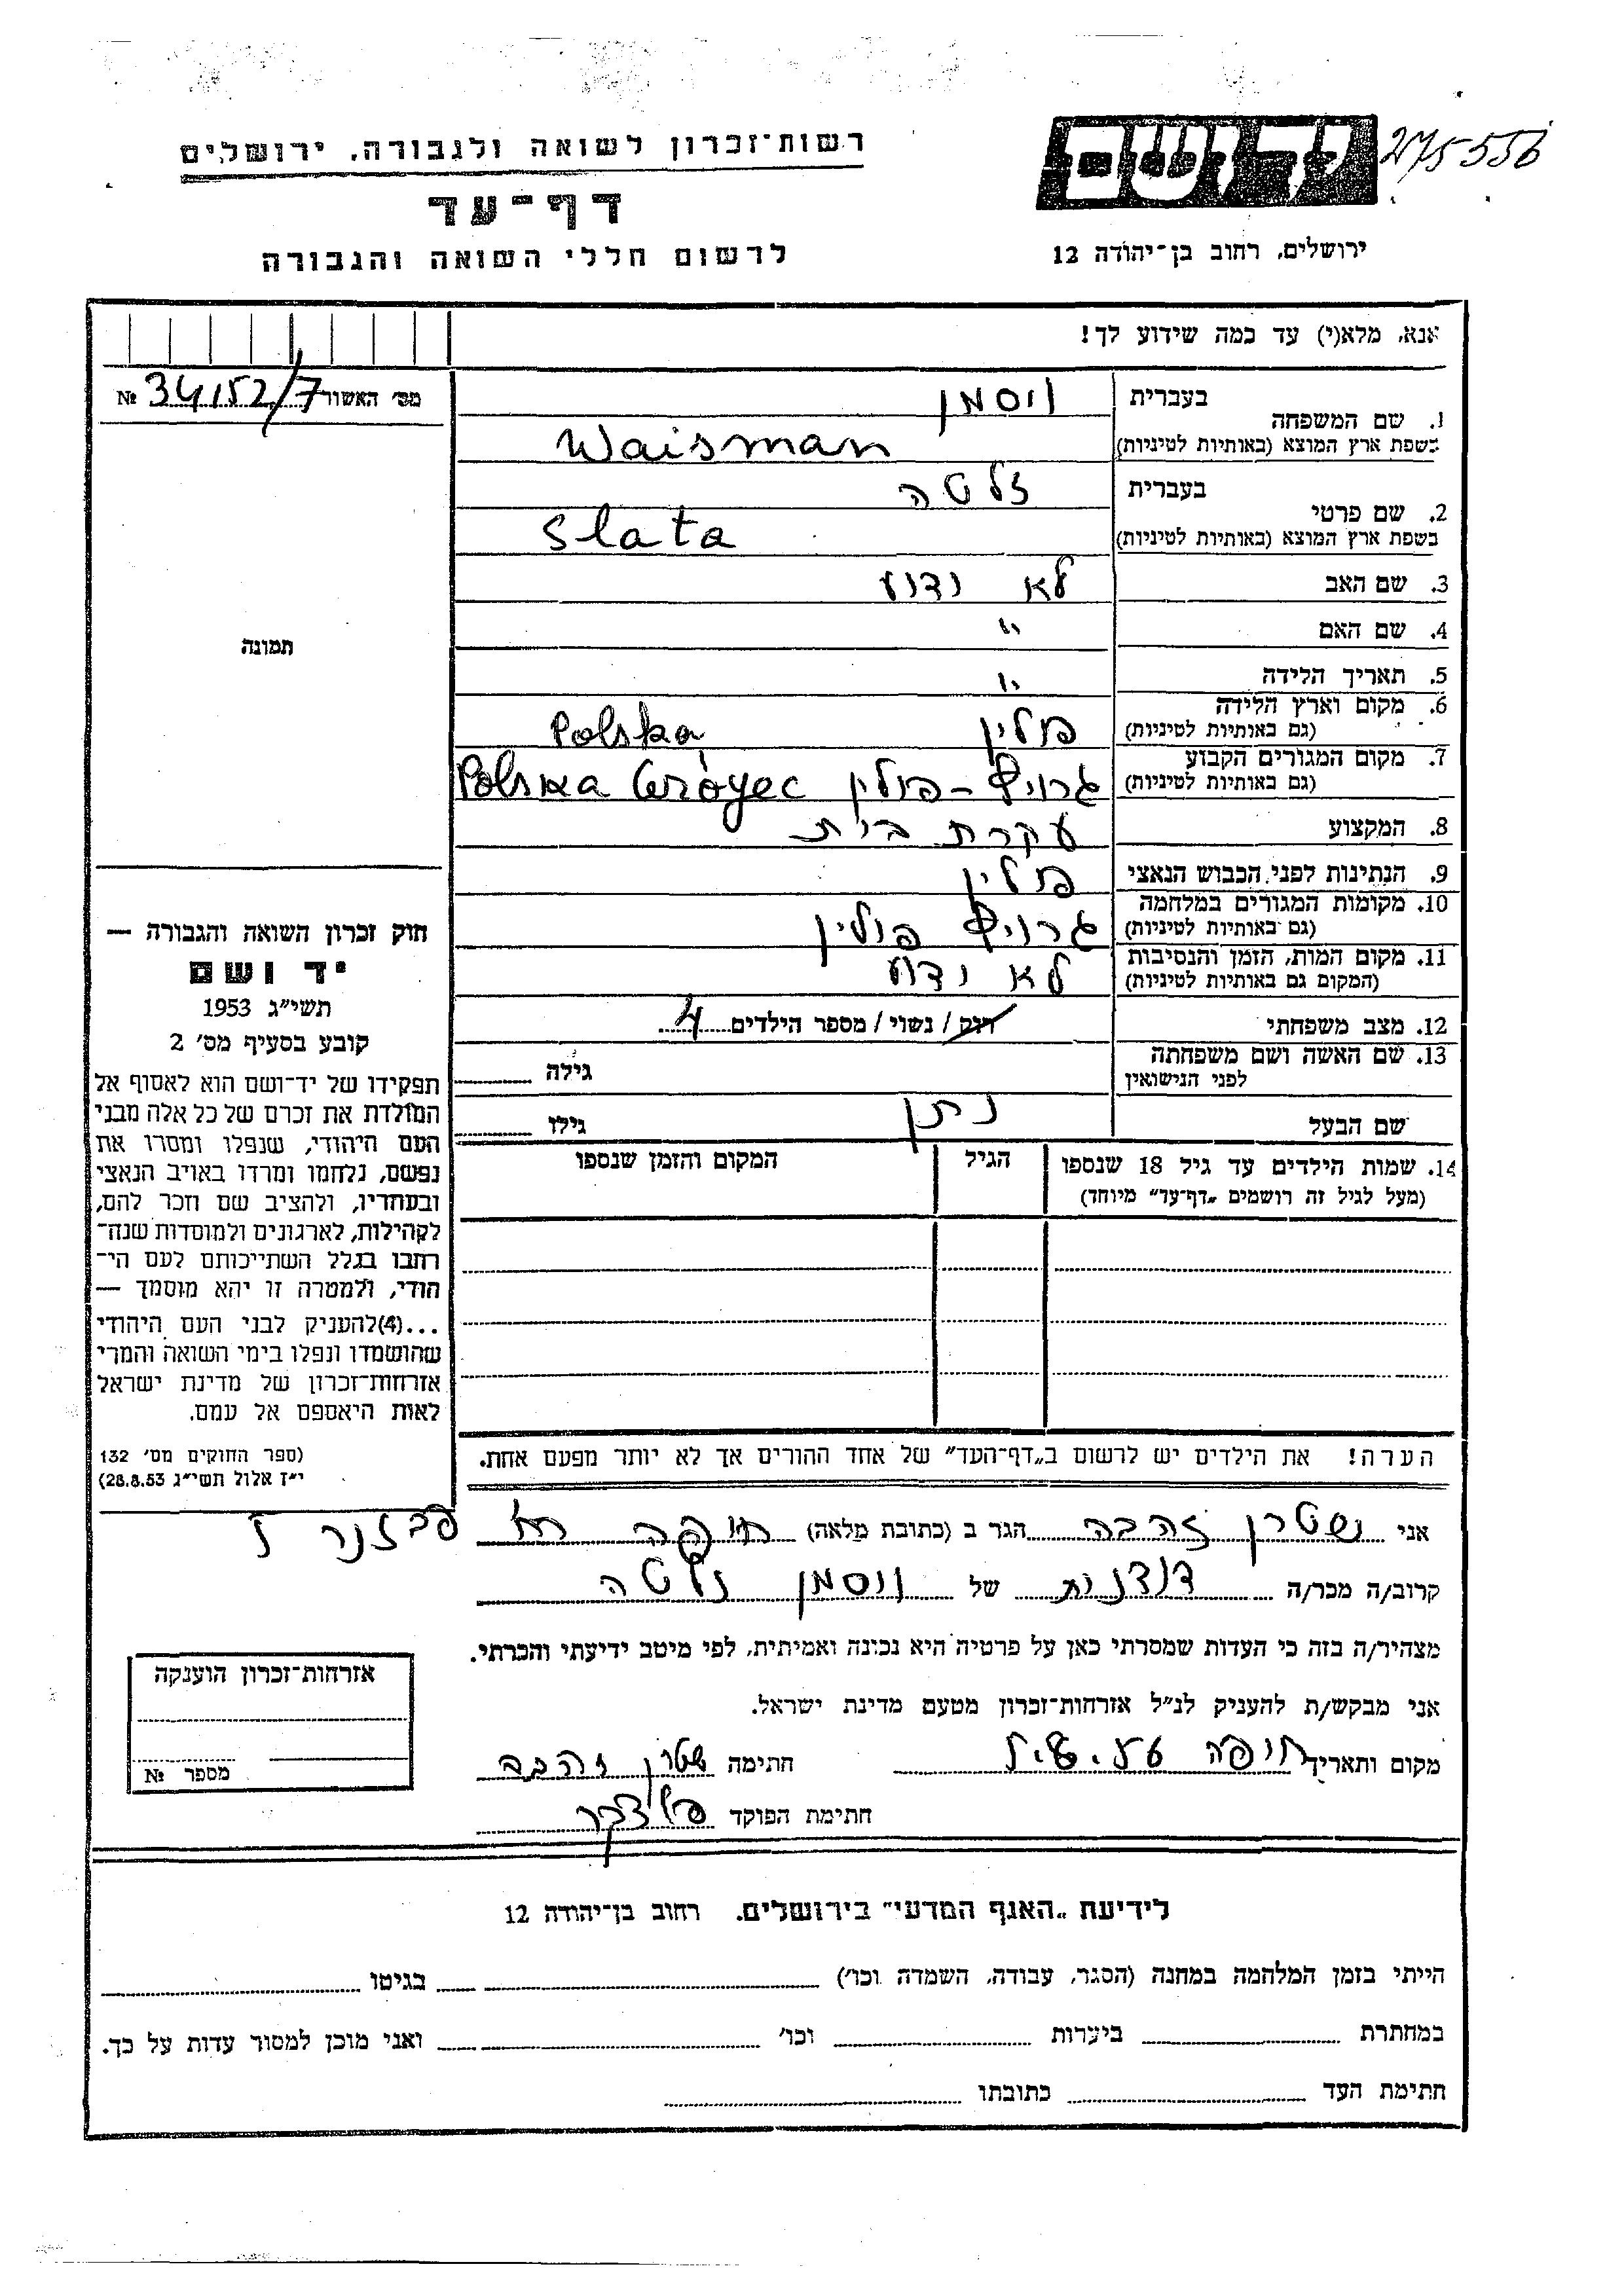 רשות־זכרון לשואה ולגבורה, ירושלים
דף־עד
לרשום חללי השואה והגבורה
יד ושם
275556
ירושלים, רחוב בן־יהודה 12
אנא, מלא(י) עד כמה שידוע לך!
מס׳ האשור 34152/7 №
תמונה
1. שם המשפחה
בעברית ויסמן
בשפת ארץ המוצא (באותיות לטיניות) Waisman
2. שם פרטי
בעברית זלטה
בשפת ארץ המוצא (באותיות לטיניות) Slata
3. שם האב לא ידוע
4. שם האם "
5. תאריך הלידה "
6. מקום וארץ הלידה
(גם באותיות לטיניות) פולין Polska
7. מקום המגורים הקבוע
(גם באותיות לטיניות) גרויץ – פולין Polska Gróyec
8. המקצוע עקרת בית
9. הנתינות לפני הכבוש הנאצי פולין
10. מקומות המגורים במלחמה
(גם באותיות לטיניות) גרויץ פולין
11. מקום המות, הזמן והנסיבות
(המקום גם באותיות לטיניות) לא ידוע
12. מצב משפחתי רוק / נשוי / מספר הילדים 4
13. שם האשה ושם משפחתה
לפני הנישואין גילה
שם הבעל נתן גילו
14. שמות הילדים עד גיל 18 שנספו הגיל המקום והזמן שנספו
(מעל לגיל זה רושמים „דף־עד״ מיוחד)
חוק זכרון השואה והגבורה —
יד ושם
תשי״ג 1953
קובע בסעיף מס׳ 2
תפקידו של יד־ושם הוא לאסוף אל
המולדת את זכרם של כל אלה מבני
העם היהודי, שנפלו ומסרו את
נפשם, נלחמו ומרדו באויב הנאצי
ובעוזריו, ולהציב שם וזכר להם,
לקהילות, לארגונים ולמוסדות שנח־
רבו בגלל השתייכותם לעם הי־
הודי, ולמטרה זו יהא מוסמך —
...(4)להעניק לבני העם היהודי
שהושמדו ונפלו בימי השואה והמרי
אזרחות־זכרון של מדינת ישראל
לאות היאספם אל עמם.
(ספר החוקים מס׳ 132
י״ז אלול תשי״ג 28.8.53)
הערה! את הילדים יש לרשום ב„דף־העד״ של אחד ההורים אך לא יותר מפעם אחת.
אני שטרן זהבה הגר ב (כתובת מלאה) חיפה רח׳ פבזנר 7
קרוב/ה מכר/ה דודנית של ויסמן זלטה
מצהיר/ה בזה כי העדות שמסרתי כאן על פרטיה היא נכונה ואמיתית, לפי מיטב ידיעתי והכרתי.
אני מבקש/ת להעניק לנ״ל אזרחות־זכרון מטעם מדינת ישראל.
מקום ותאריך חיפה חתימה שטרן זהבה
חתימת הפוקד
אזרחות־זכרון הוענקה
מספר №
לידיעת „האגף המדעי״ בירושלים. רחוב בן־יהודה 12
הייתי בזמן המלחמה במחנה (הסגר, עבודה, השמדה וכו׳) בגיטו
במחתרת ביערות וכו׳ ואני מוכן למסור עדות על כך.
חתימת העד כתובתו